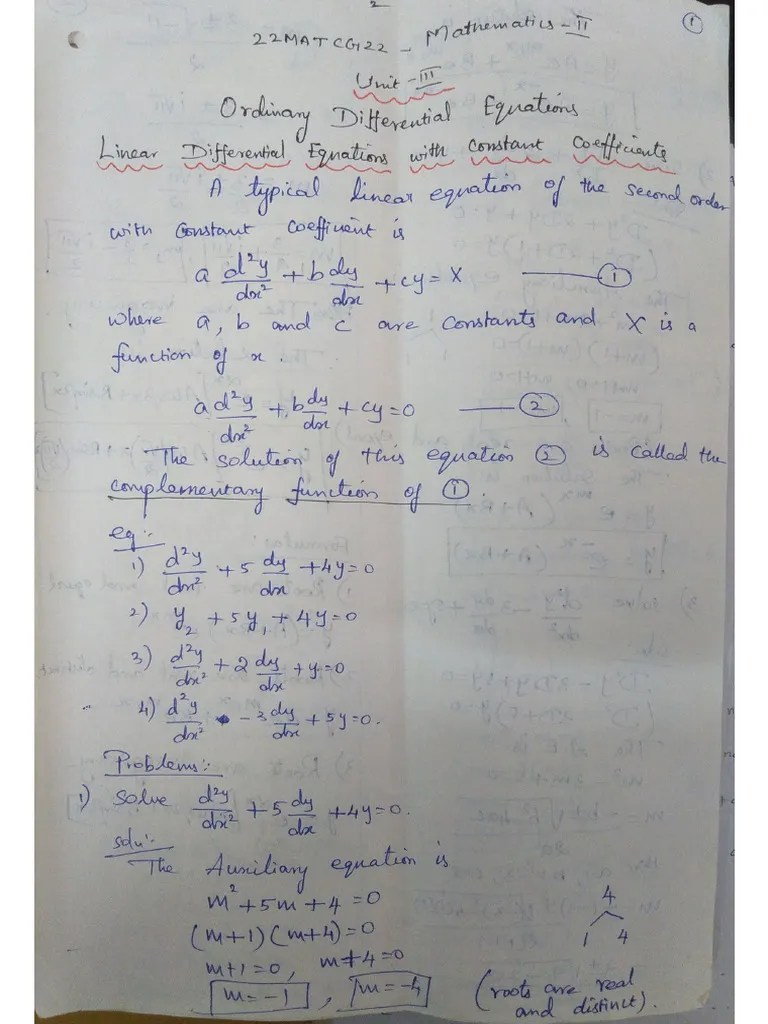 2
①
22MATCG122 - Mathematics - II
Unit - III
Ordinary Differential Equations
Linear Differential Equations with constant Coefficients
A typical linear equation of the second order
with constant coefficient is
a d²y/dx² + b dy/dx + cy = X —— ①
where a, b and c are constants and X is a
function of x.
a d²y/dx² + b dy/dx + cy = 0 —— ②
The solution of this equation ② is called the
complementary function of ①.
eg:-
1) d²y/dx² + 5 dy/dx + 4y = 0
2) y₂ + 5y₁ + 4y = 0
3) d²y/dx² + 2 dy/dx + y = 0
4) d²y/dx² - 3 dy/dx + 5y = 0.
Problems:-
1) Solve d²y/dx² + 5 dy/dx + 4y = 0.
Solu:-
The Auxiliary equation is
m² + 5m + 4 = 0
4
(m+1) (m+4) = 0
1 4
m+1 = 0, m+4 = 0
m = -1, m = -4
(roots are real
and distinct).